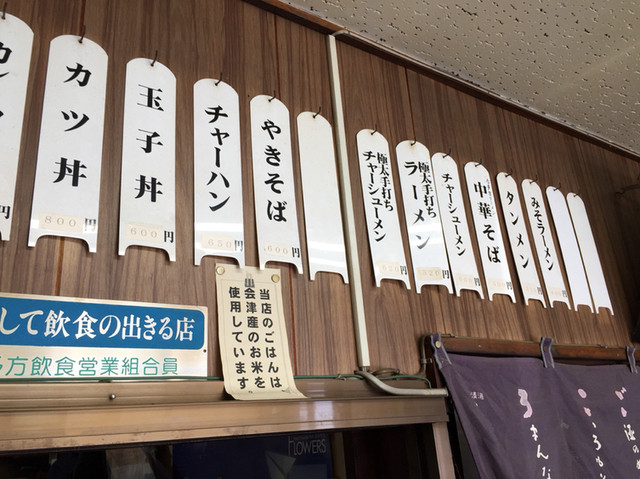 カツ丼
800円
玉子丼
600円
チャーハン
650円
やきそば
600円
極太手打ち
チャーシューメン
円
極太手打ち
ラーメン
円
チャーシューメン
円
中華そば
円
タンメン
円
みそラーメン
円
して飲食の出きる店
多方飲食営業組合員
当店のごはんは
会津産のお米を
使用しています
FLOWERS